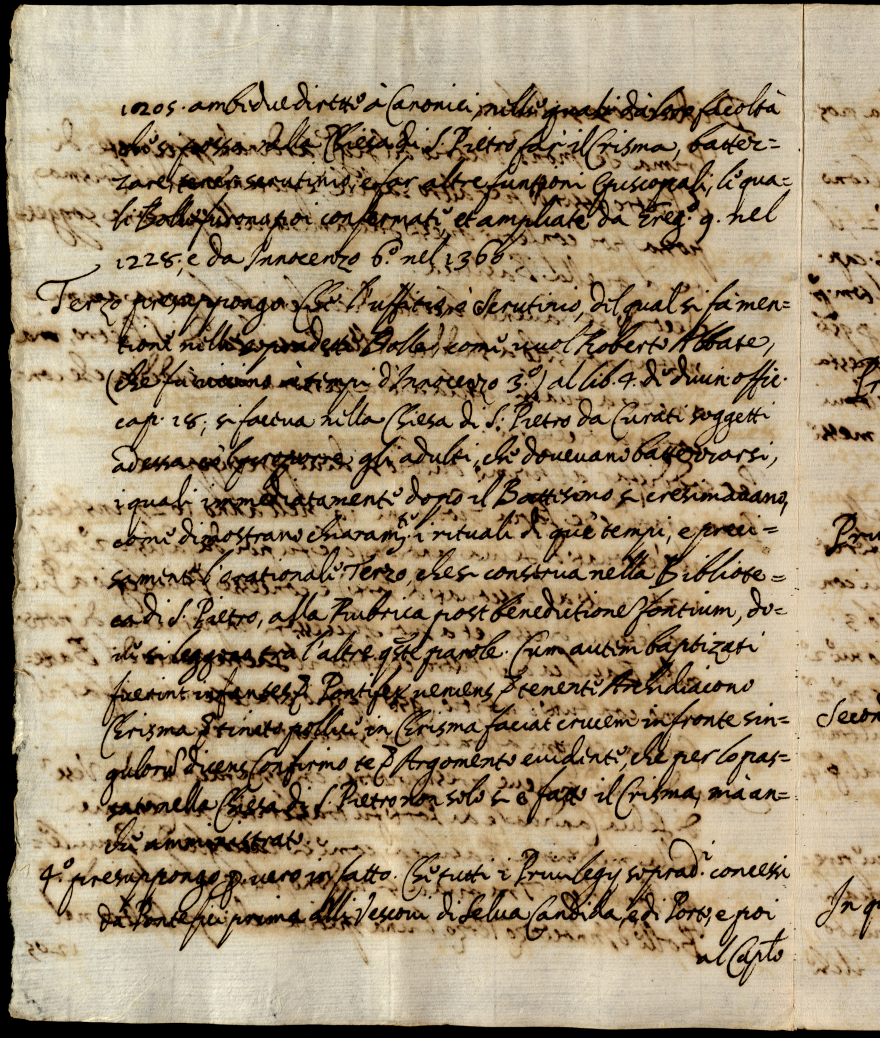 1205. ambidue diretti à Canonici, nelli quali dà loro facoltà
che si possa nella Chiesa di S. Pietro far il Crisma, battez=
zare, tener scrutinio, e far altre funzioni Episcopali, le qua=
li Bolle furono poi confermate, et ampliate da Greg.º 9. nel
1228; e da Innocenzo 6.º nel 1360
Terzo presuppongo Che l'uffitio, e Scrutinio, del qual si fa men=
tione nelle sopradette Bolle, come vuol Roberto Abbate,
(che fu vicino à tempi d'Innocenzo 3.º) al lib. 4. de diuin: offic.
cap. 18; si faceua nella Chiesa di S. Pietro da Curati soggetti
ad essa gli adulti, che doueuano battezzarsi,
i quali immediatamente dopo il Battesimo si cresimauano,
come dimostrano chiaram.te i rituali di que' tempi, e preci=
samente l'orationali Terzo, che si conserua nella Bibliote=
ca di S. Pietro, alla Rubrica post benedictione fontium, do=
ue si leggono trà l'altre q.ste parole. Cum autem baptizati
fuerint infantes Pontifex ueniens tenente Archidiacono
Chrisma tincto pollice in Chrisma faciat crucem in fronte sin=
gulorũ dicens Confirmo te Argomento euidente, che per lo pas=
sato nella Chiesa di S. Pietro non solo si è fatto il Crisma, mà an=
che amministrato.
4.º presuppongo vero in fatto. Che tutti i Priuilegij soprad.i concessi
da Pontefici prima alli Vescoui di Selua Candida, e di Porto, e poi
al Capto